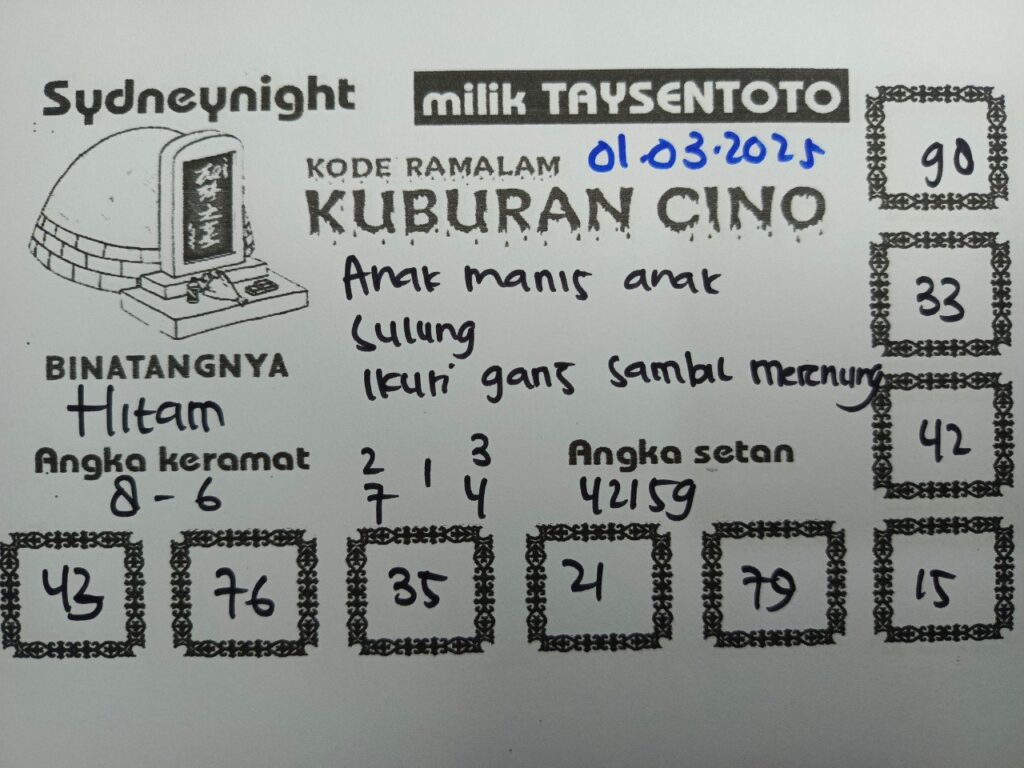 Sydneynight
milik TAYSENTOTO
01.03.2025
KODE RAMALAM
KUBURAN CINO
Anak manis anak
sulung
Ikuti gans sambil merenung
BINATANGNYA
Hitam
Angka keramat
8 - 6
2 1 3
7 4
Angka setan
42159
90
33
42
43 76 35 21 79 15